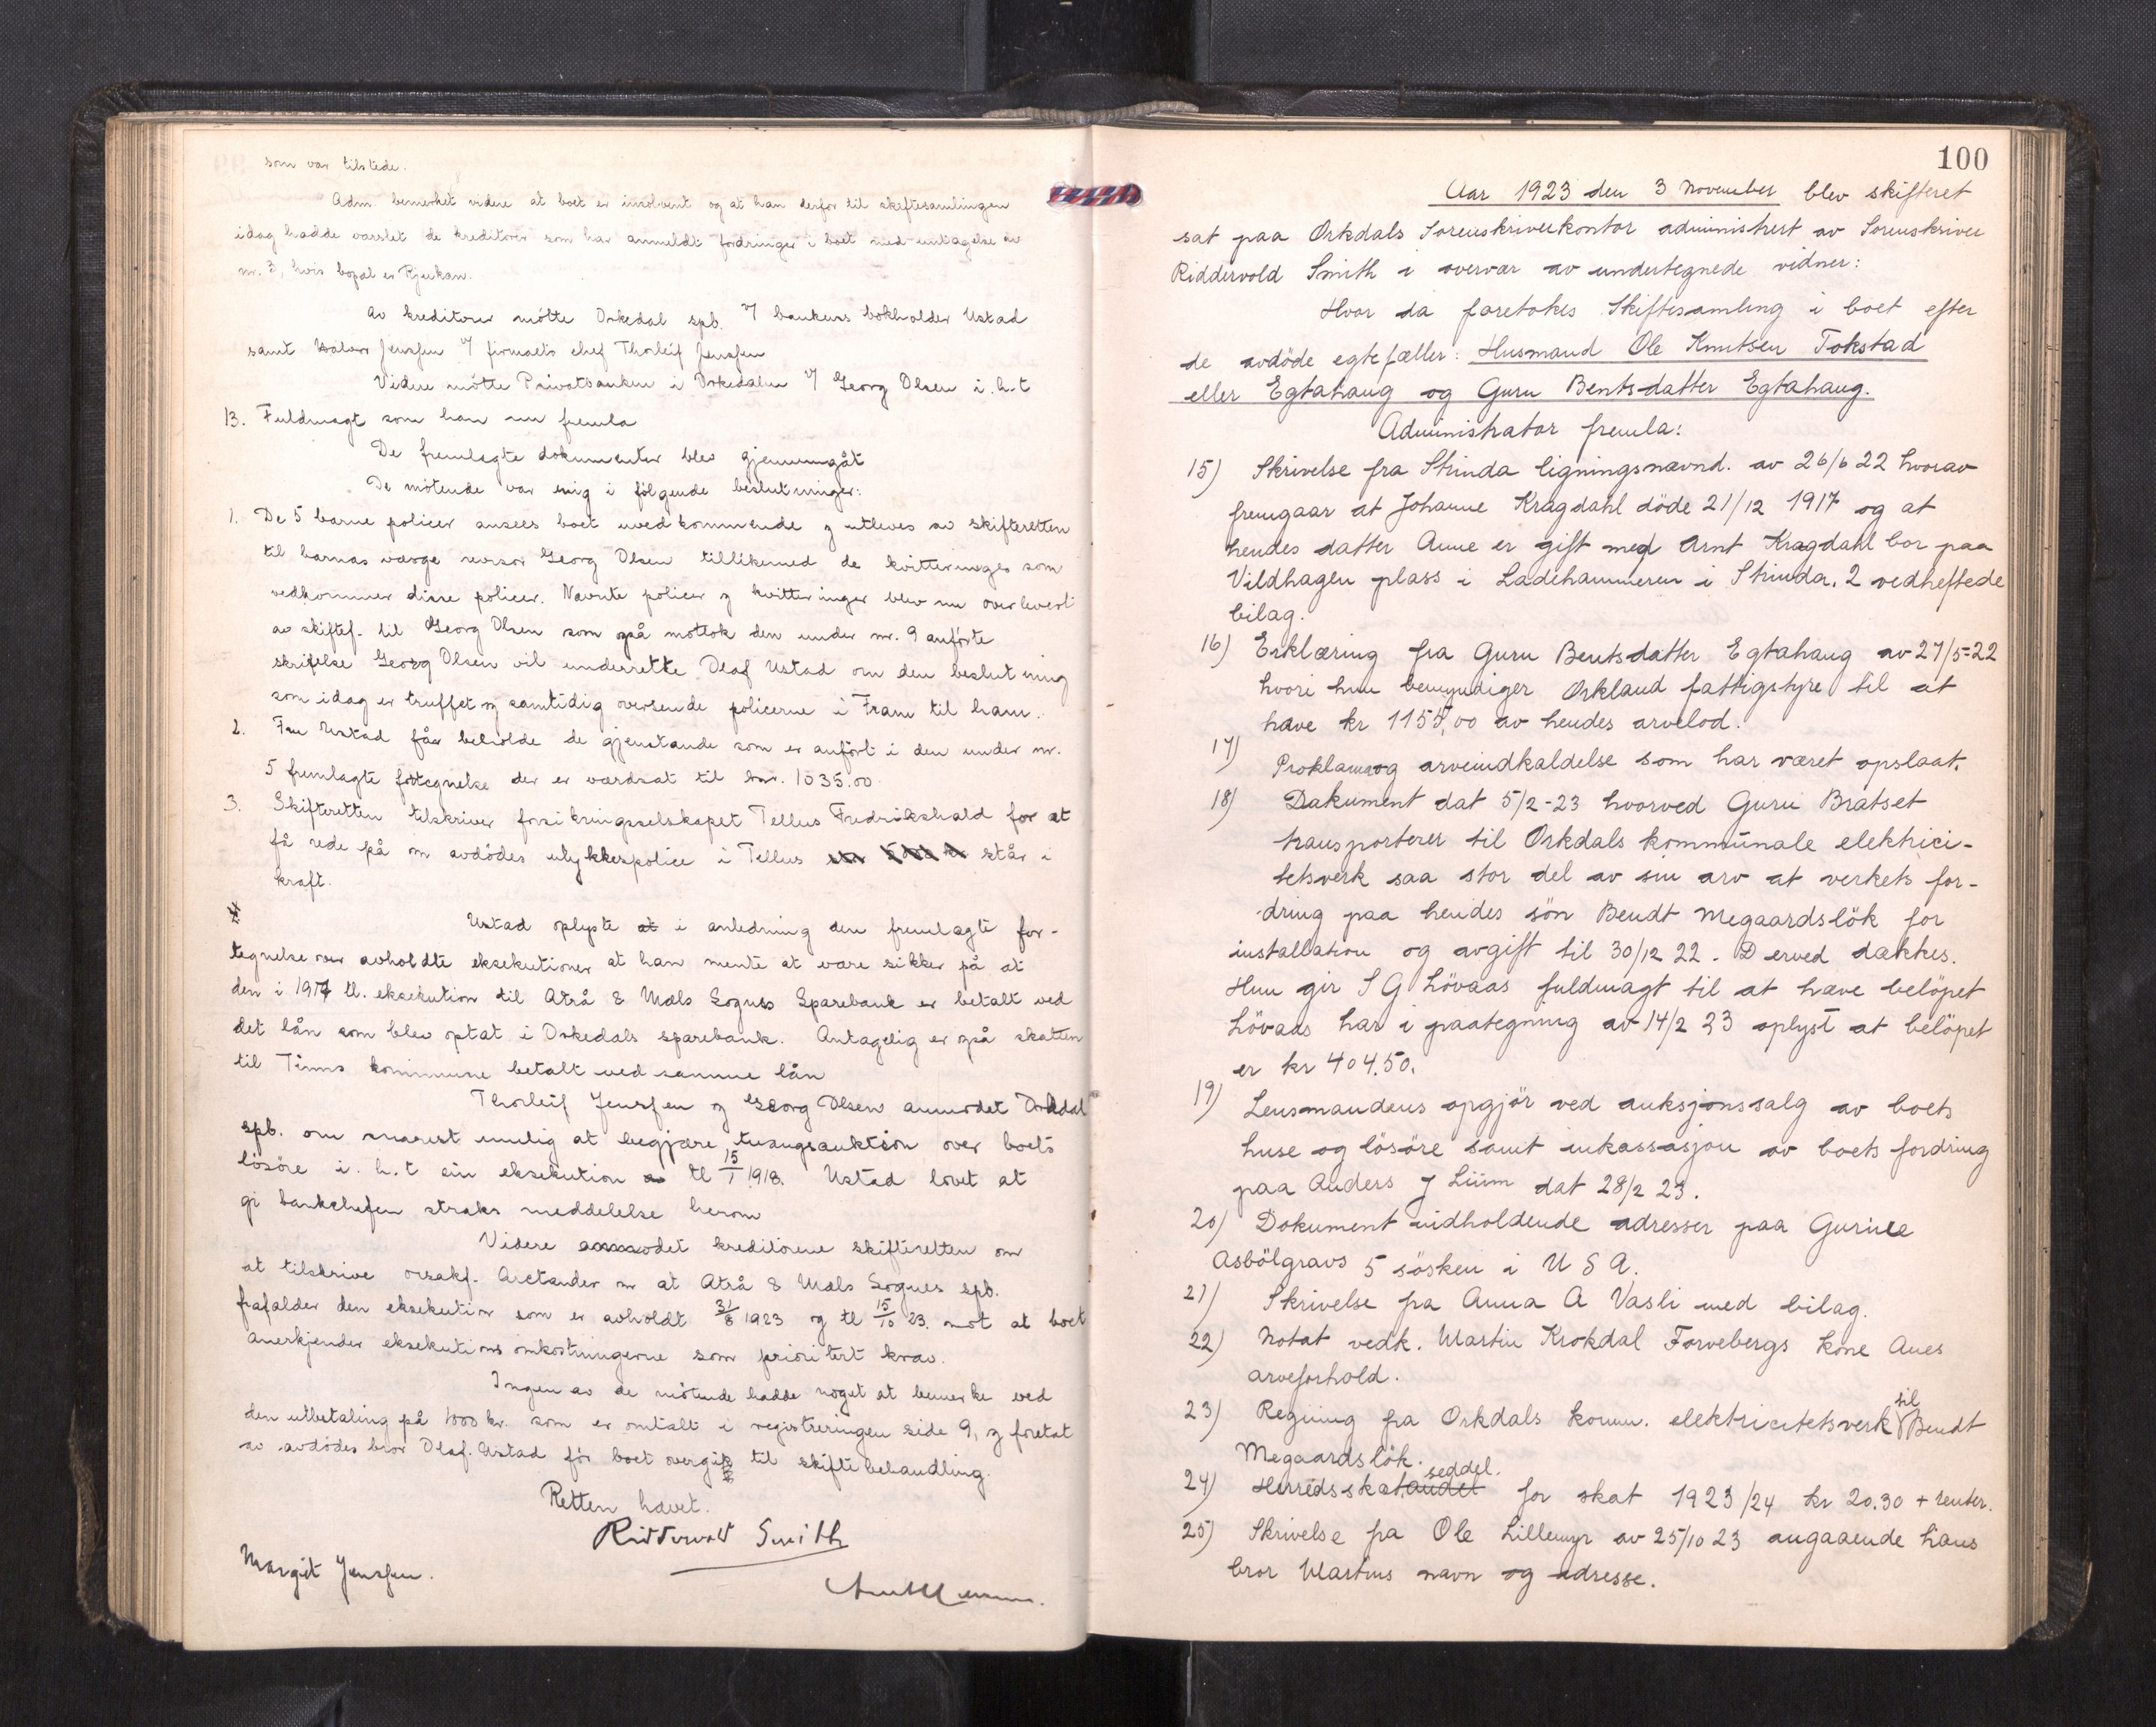 som var tilstede.
Adm. bemerket videre at boet er insolvent og at han derfor til skiftesamlingen
idag hadde varslet de kreditorer som har anmeldt fordringer i boet med undtagelse av
nr. 3, hvis bopæl er Rjukan.
Av kreditorer møtte Orkedal spb. v/ bankens bokholder Ustad
samt Jenssen v/ firmaets chef Thorleif Jenssen
Videre møtte Privatbanken i Orkedalen v/ Georg Olsen i. h. t
13. Fuldmagt som han nu fremla
De fremlagte dokumenter blev gjennemgåt
De møtende var enig i følgende beslutninger:
1. De 5 barne policer ansees boet uvedkommende og utleves av skifteretten
til barnas værge revisor Georg Olsen tillikemed de kvitteringer som
vedkommer disse policer. Nævnte policer og kvitteringer blev nu overlevert
av skiftef. til Georg Olsen som også mottok den under nr. 9 anførte
skrifelse Georg Olsen vil underrette Olaf Ustad om den beslutning
som idag er truffet og samtidig oversende policerne i Fram til ham.
2. Fru Ustad får beholde de gjenstande som er anført i den under nr.
5 fremlagte fortegnelse der er værdsat til kr. 1035.00
3. Skifteretten tilskriver forsikringsselskapet Tellus Fredrikshald for at
få rede på om avdødes ulykkespolice i Tellus står i
kraft.
Ustad oplyste at i anledning den fremlagte for-
tegnelse over avholdte eksekutioner at han mente at være sikker på at
den i 1917 tl. eksekution til Atrå & Mæls Sognes Sparebank er betalt ved
det lån som blev optat i Orkedals sparebank. Antagelig er også skatten
til Tinns kommune betalt ved samme lån
Thorleif Jenssen og Georg Olsen anmodet Orkdal
spb. om snarest mulig at begjære tvangsauktion over boets
løsøre i. h. t sin eksekution av tl 15/1 1918. Ustad lovet at
gi bankchefen straks meddelelse herom
Videre anmodet kreditorene skifteretten om
at tilskrive orsakf. Arctander om at Atrå & Mæls Sognes spb.
frafalder den eksekution som er avholdt 31/8 1923 og tl 15/10 23. mot at boet
anerkjender eksekutionsomkostningerne som prioritert krav.
Ingen av de møtende hadde noget at bemerke ved
den utbetaling på 1000 kr. som er omtalt i registreringen side 9, og foretat
av avdødes bror Olaf Ustad før boet overgik til skiftebehandling.
Retten hævet.
Riddervold Smith
Margit Jenssen.
100
Aar 1923 den 3 November blev skifteret
sat paa Orkdals Sorenskriverkontor administrert av Sorenskriver
Riddervold Smith i overvær av undertegnede vidner:
Hvor da foretokes Skiftesamling i boet efter
de avdöde egtefæller: Husmand Ole Knutsen Tokstad
eller Egtahaug og Guru Bentsdatter Egtahaug.
Administrator fremla:
15) Skrivelse fra Strinda ligningsnævnd. av 26/6 22 hvorav
fremgaar at Johanne Kragdahl döde 21/12 1917 og at
hendes datter Anne er gift med Arnt Kragdahl bor paa
Vildhagen plass i Ladehammeren i Strinda. 2 vedheftede
bilag.
16) Erklæring fra Guru Bentsdatter Egtahaug av 27/5-22
hvori hun bemyndiger Orkland fattigstyre til at
hæve kr 1155,00 av hendes arvelod.
17) Proklama og arveindkaldelse som har været opslaat.
18) Dokument dat 5/2-23 hvorved Guru Bratset
transporterer til Orkdals kommunale elektrici-
tetsverk saa stor del av sin arv at verkets for-
dring paa hendes sön Bendt Megaardslök for
installation og avgift til 30/12 22. Derved dækkes.
Hun gir S G Lövaas fuldmagt til at hæve belöpet
Lövaas har i paategning av 14/2 23 oplyst at belöpet
er kr 404.50.
19) Lensmandens opgjör ved auksjonssalg av boets
huse og lösöre samt inkassasjon av boets fordring
paa Anders J Liium dat 28/2 23.
20) Dokument indholdende adresser paa Gurine
Asbölgravs 5 sösken i U S A.
21) Skrivelse fra Anna A Vasli med bilag.
22) Notat vedk. Martin Krokdal Forvebergs kone Anes
arveforhold.
23) Regning fra Orkdals komm. elektricitetsverk til Bendt
Megaardslök.
24) Herredsskatandel seddel. for skat 1923/24 kr 20.30 + renter.
25) Skrivelse fra Ole Lillemyr av 25/10 23 angaaende hans
bror Martins navn og adresse.